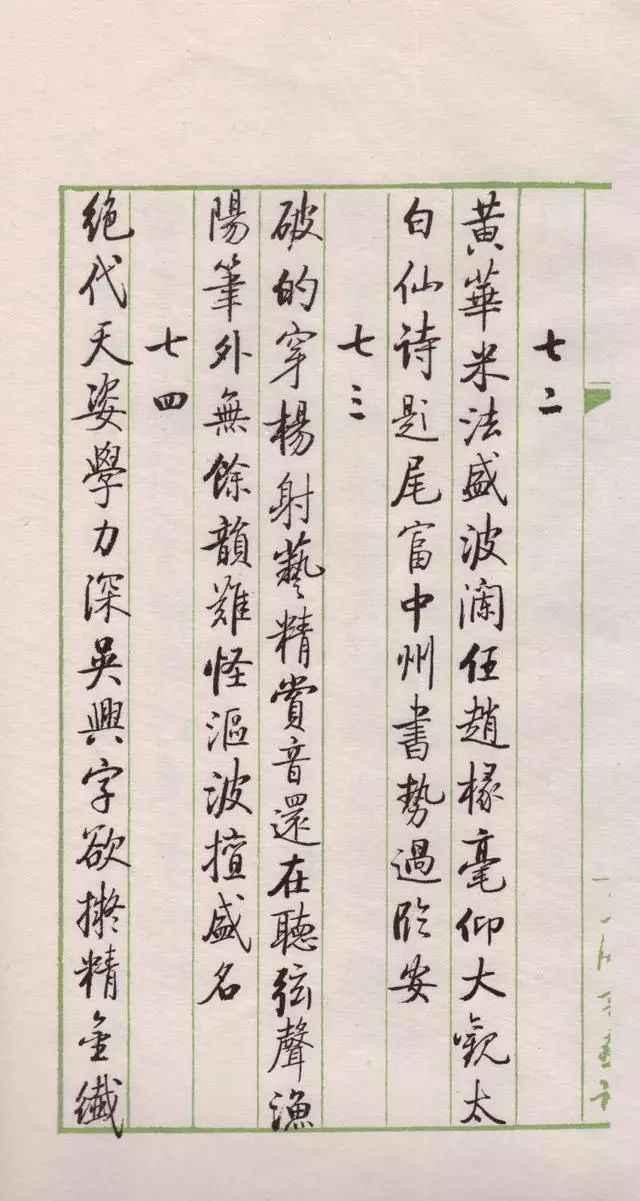 七二
黃華米法盛波瀾任趙椽毫仰大觀太
白仙诗題尾富中州書勢過臨安
七三
破的穿楊射藝精賞音還在聽弦聲漁
陽筆外無餘韻難怪漚波擅盛名
七四
絕代天姿學力深吳興字欲擬精金纖